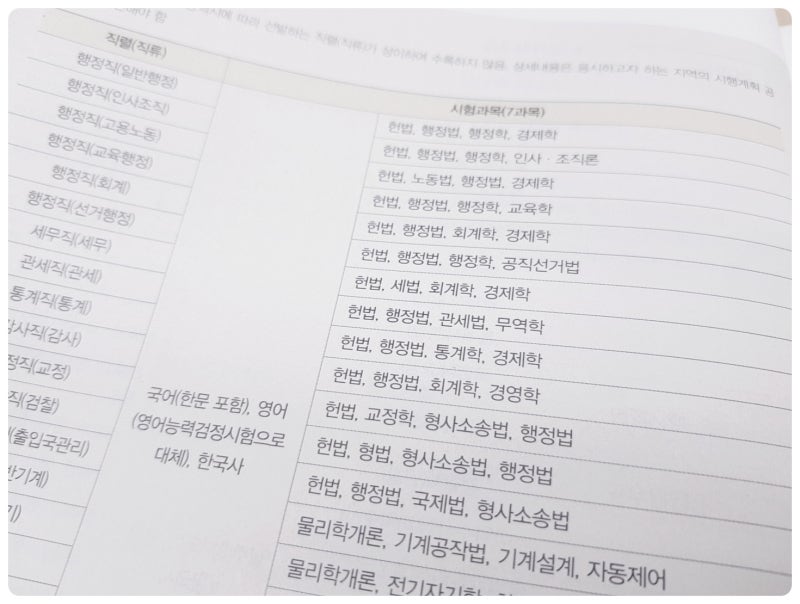 에 따라 선발하는 직렬(직류)가 상이하여 수록하지 않음. 상세내용은 응시하고자 하는 지역의 시행계획 공
해야 함
직렬(직류)
시험과목(7과목)
행정직(일반행정)
헌법, 행정법, 행정학, 경제학
행정직(인사조직)
헌법, 행정법, 행정학, 인사·조직론
행정직(고용노동)
헌법, 노동법, 행정법, 경제학
행정직(교육행정)
헌법, 행정법, 행정학, 교육학
행정직(회계)
헌법, 행정법, 회계학, 경제학
행정직(선거행정)
헌법, 행정법, 행정학, 공직선거법
세무직(세무)
헌법, 세법, 회계학, 경제학
관세직(관세)
헌법, 행정법, 관세법, 무역학
통계직(통계)
헌법, 행정법, 통계학, 경제학
감사직(감사)
헌법, 행정법, 회계학, 경영학
정직(교정)
헌법, 교정학, 형사소송법, 행정법
직(검찰)
헌법, 형법, 형사소송법, 행정법
(출입국관리)
헌법, 행정법, 국제법, 형사소송법
반기계)
물리학개론, 기계공작법, 기계설계, 자동제어
기)
물리학개론, 전기자기학,
국어(한문 포함), 영어
(영어능력검정시험으로
대체), 한국사